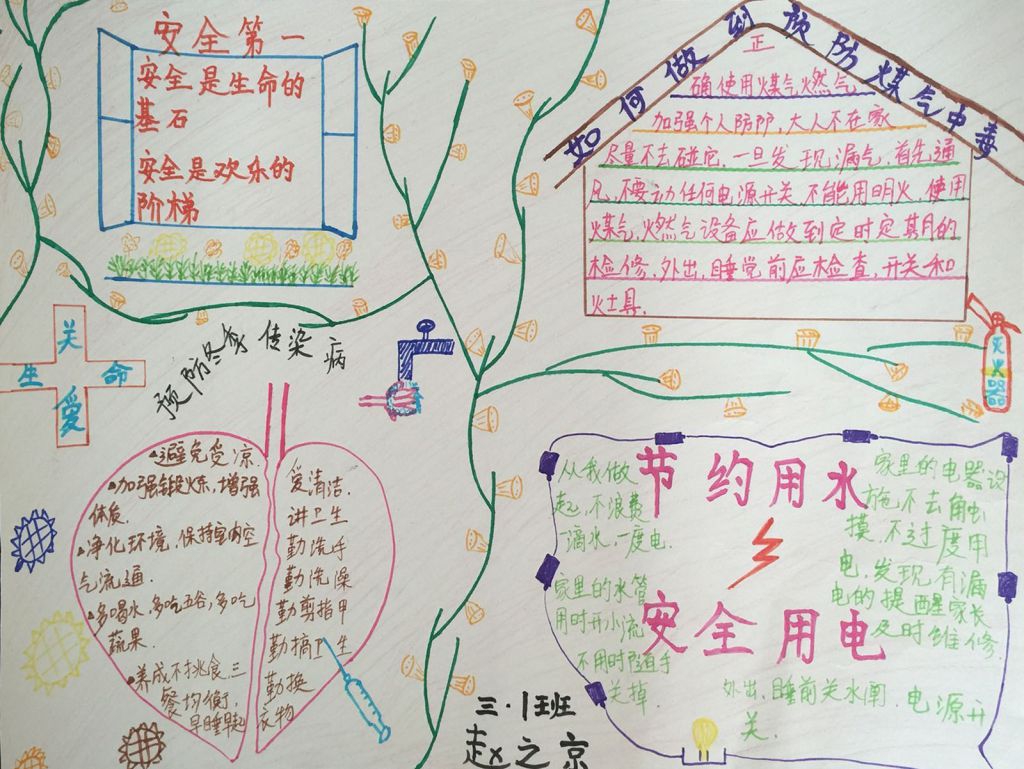 安全第一
安全是生命的
基石
安全是欢乐的
阶梯
如何做到预防煤气中毒
正
确使用煤气燃气
加强个人防护，大人不在家
尽量不去碰它，一旦发现漏气，首先通
风，不要动任何电源开关，不能用明火，使用
煤气，燃气设备应做到定时定期的
检修，外出，睡觉前应检查，开关和
灶具.
关
生 命
爱
预防冬季传染病
避免受凉.
加强锻炼，增强
体质.
净化环境，保持室内空
气流通.
多喝水，多吃五谷，多吃
蔬果.
养成不挑食，三
餐均衡，
早睡早起
爱清洁.
讲卫生
勤洗手
勤洗澡
勤剪指甲
勤搞卫生
勤换
衣物
灭火器
节约用水
从我做
起，不浪费
一滴水，一度电.
家里的水管
用时开小流
不用时随手
关掉
安全用电
家里的电器设
施，不去触
摸，不过度用
电，发现有漏
电的提醒家长
及时维修.
外出，睡前关水闸，电源开
关.
三·1班
赵之京